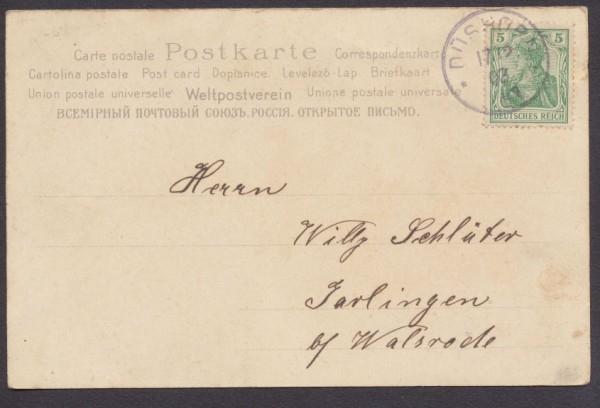 Carte postale Postkarte Correspondenzkarte
Cartolina postale Post card Dopisnice Levelező-Lap Briefkaart
Union postale universelle Weltpostverein Unione postale universale
ВСЕМІРНЫЙ ПОЧТОВЫЙ СОЮЗЪ. РОССІЯ. ОТКРЫТОЕ ПИСЬМО.
5 5
DEUTSCHES REICH
Herrn
Willy Schlüter
Jarlingen
b/ Walsrode